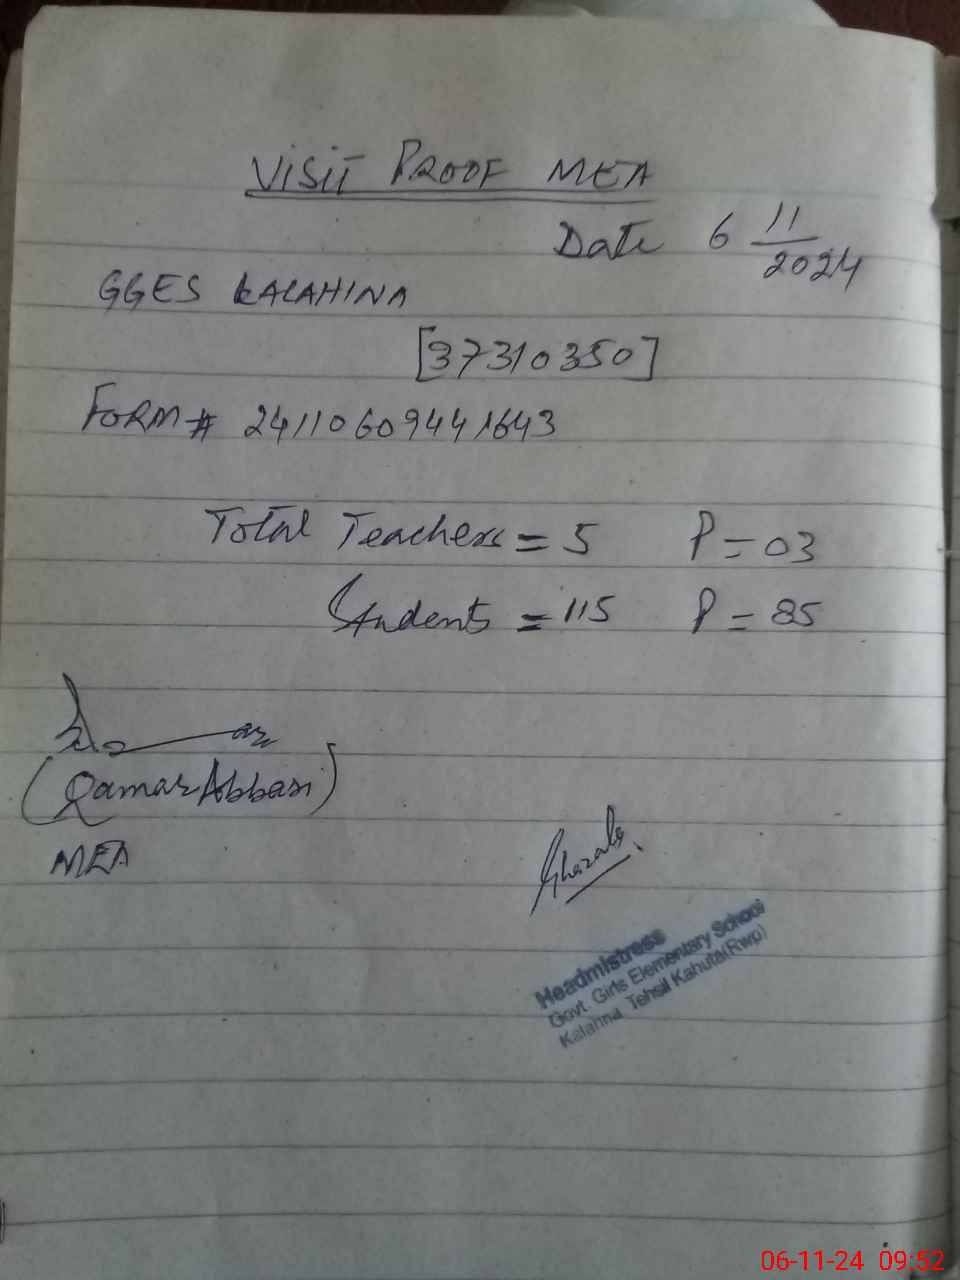 VISIT PROOF MEA
Date 6 11/2024
GGES KALAHINA
[37310350]
FORM # 24110609441643
Total Teachers = 5 P = 03
Students = 115 P = 85
(Qamar Abbasi)
MEA
Ghazala
Headmistress
Govt. Girls Elementary School
Kalahna Tehsil Kahuta(Rwp)
06-11-24 09:52